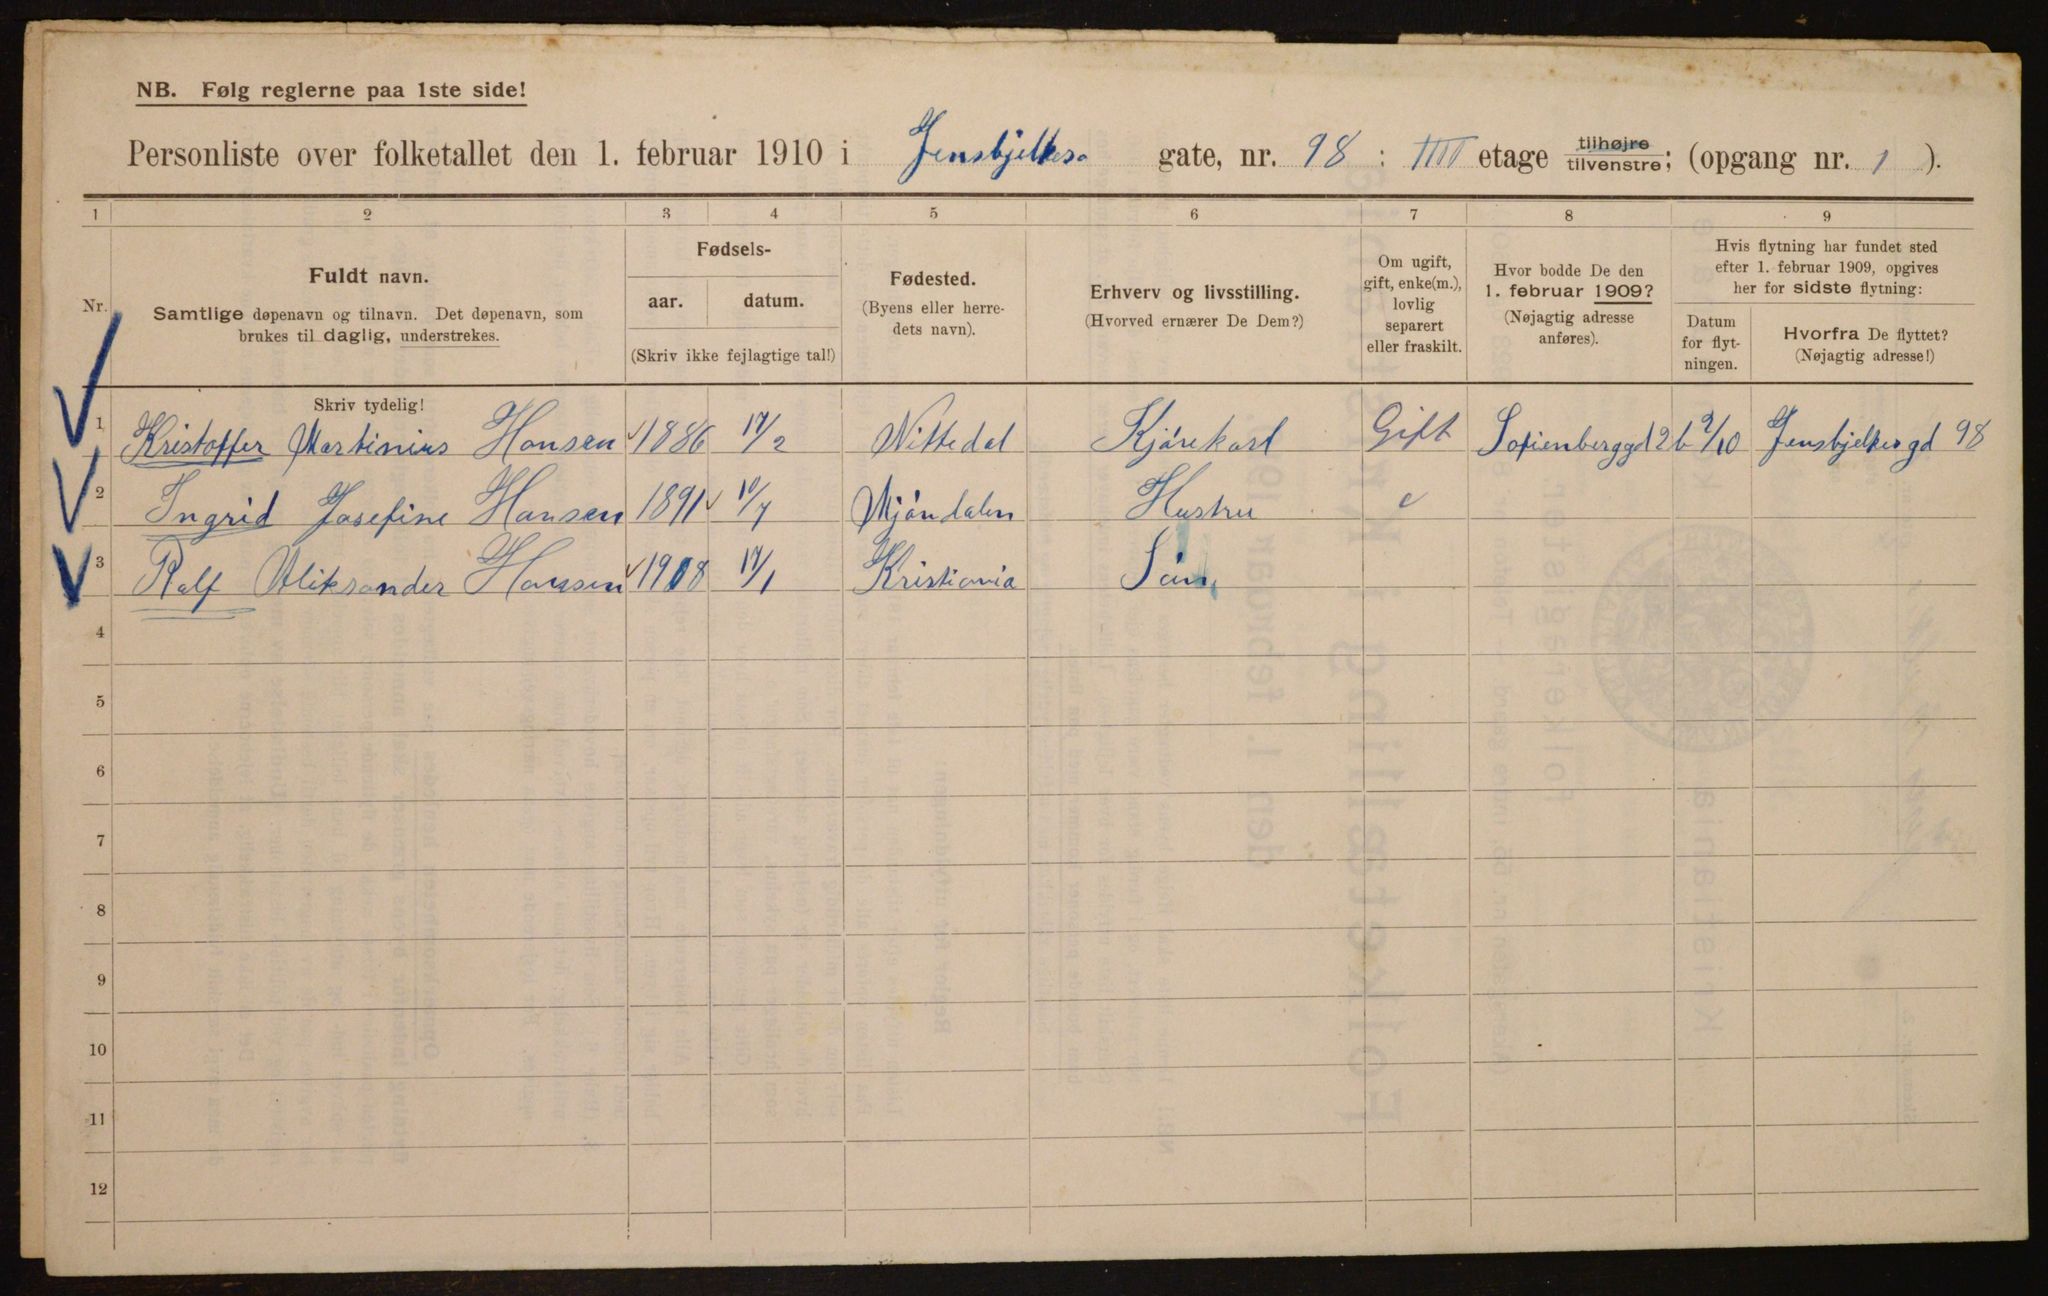 NB. Følg reglerne paa 1ste side!
Personliste over folketallet den 1. februar 1910 i Jensbjelkes gate, nr. 98 : IIII etage tilhøjre / tilvenstre; (opgang nr. 1 ).
1 2 3 4 5 6 7 8 9
Nr.
Fuldt navn.
Samtlige døpenavn og tilnavn. Det døpenavn, som
brukes til daglig, understrekes.
Skriv tydelig!
Fødsels-
aar. datum.
(Skriv ikke fejlagtige tal!)
Fødested.
(Byens eller herre-
dets navn).
Erhverv og livsstilling.
(Hvorved ernærer De Dem?)
Om ugift,
gift, enke(m.),
lovlig
separert
eller fraskilt.
Hvor bodde De den
1. februar 1909?
(Nøjagtig adresse
anføres).
Hvis flytning har fundet sted
efter 1. februar 1909, opgives
her for sidste flytning:
Datum
for flyt-
ningen.
Hvorfra De flyttet?
(Nøjagtig adresse!)
1 Kristoffer Martinius Hansen 1886 17/2 Nittedal Kjørekarl Gift Sofienberggd 2b 9/10 Jensbjelkesgd 98
2 Ingrid Josefine Hansen 1891 10/7 Mjøndalen Hustru
3 Ralf Aleksander Hansen 1908 17/1 Kristiania Søn
4
5
6
7
8
9
10
11
12